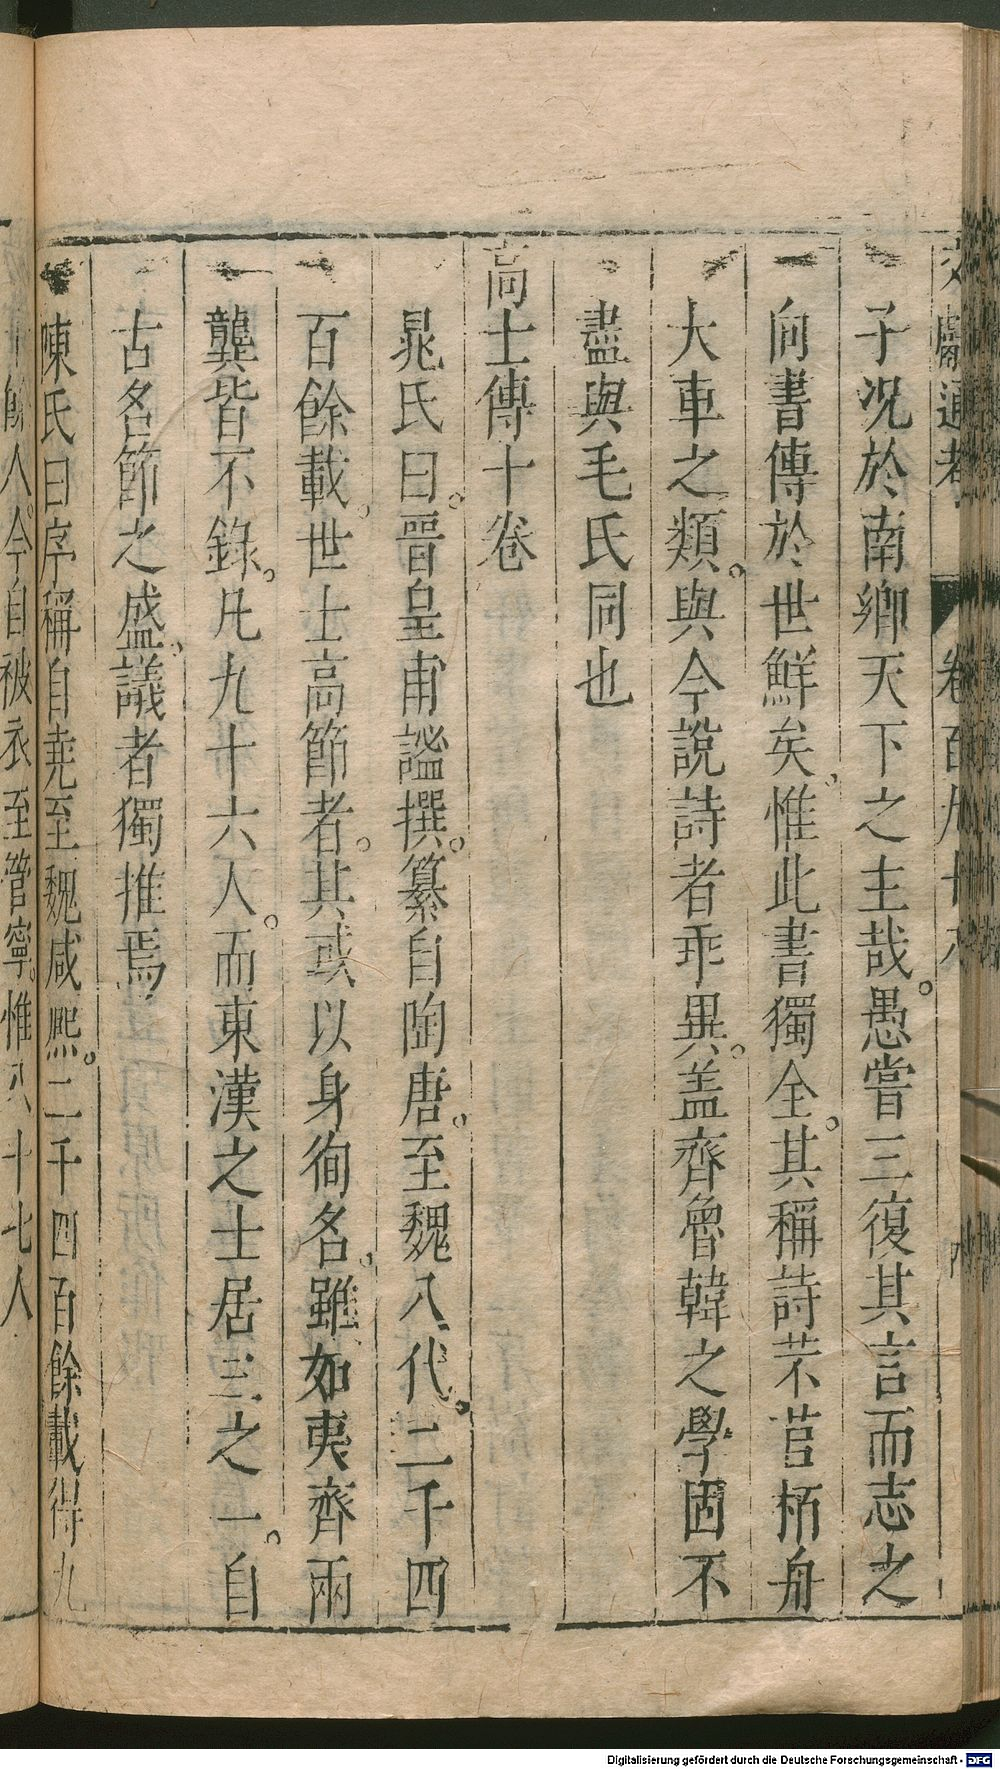 文獻通考 卷百九十八
子况於南鄉天下之主哉。愚嘗三復其言而志之
向書傳於世鮮矣、惟此書獨全。其稱詩芣苢栢舟
大車之類。與今說詩者乖異。盖齊魯韓之學固不
盡與毛氏同也
高士傳十卷
晁氏曰。晉皇甫謐撰。纂自陶唐。至魏八代。二千四
百餘載。世士高節者。其或以身徇名。雖如夷齊兩
龔皆不錄。凡九十六人。而東漢之士居三之一。自
古名節之盛、議者獨推焉、
陳氏曰序稱自堯至魏咸熙。二千四百餘載得九
十餘人。今自被衣至管寧。惟八十七人
Digitalisierung gefördert durch die Deutsche Forschungsgemeinschaft - DFG